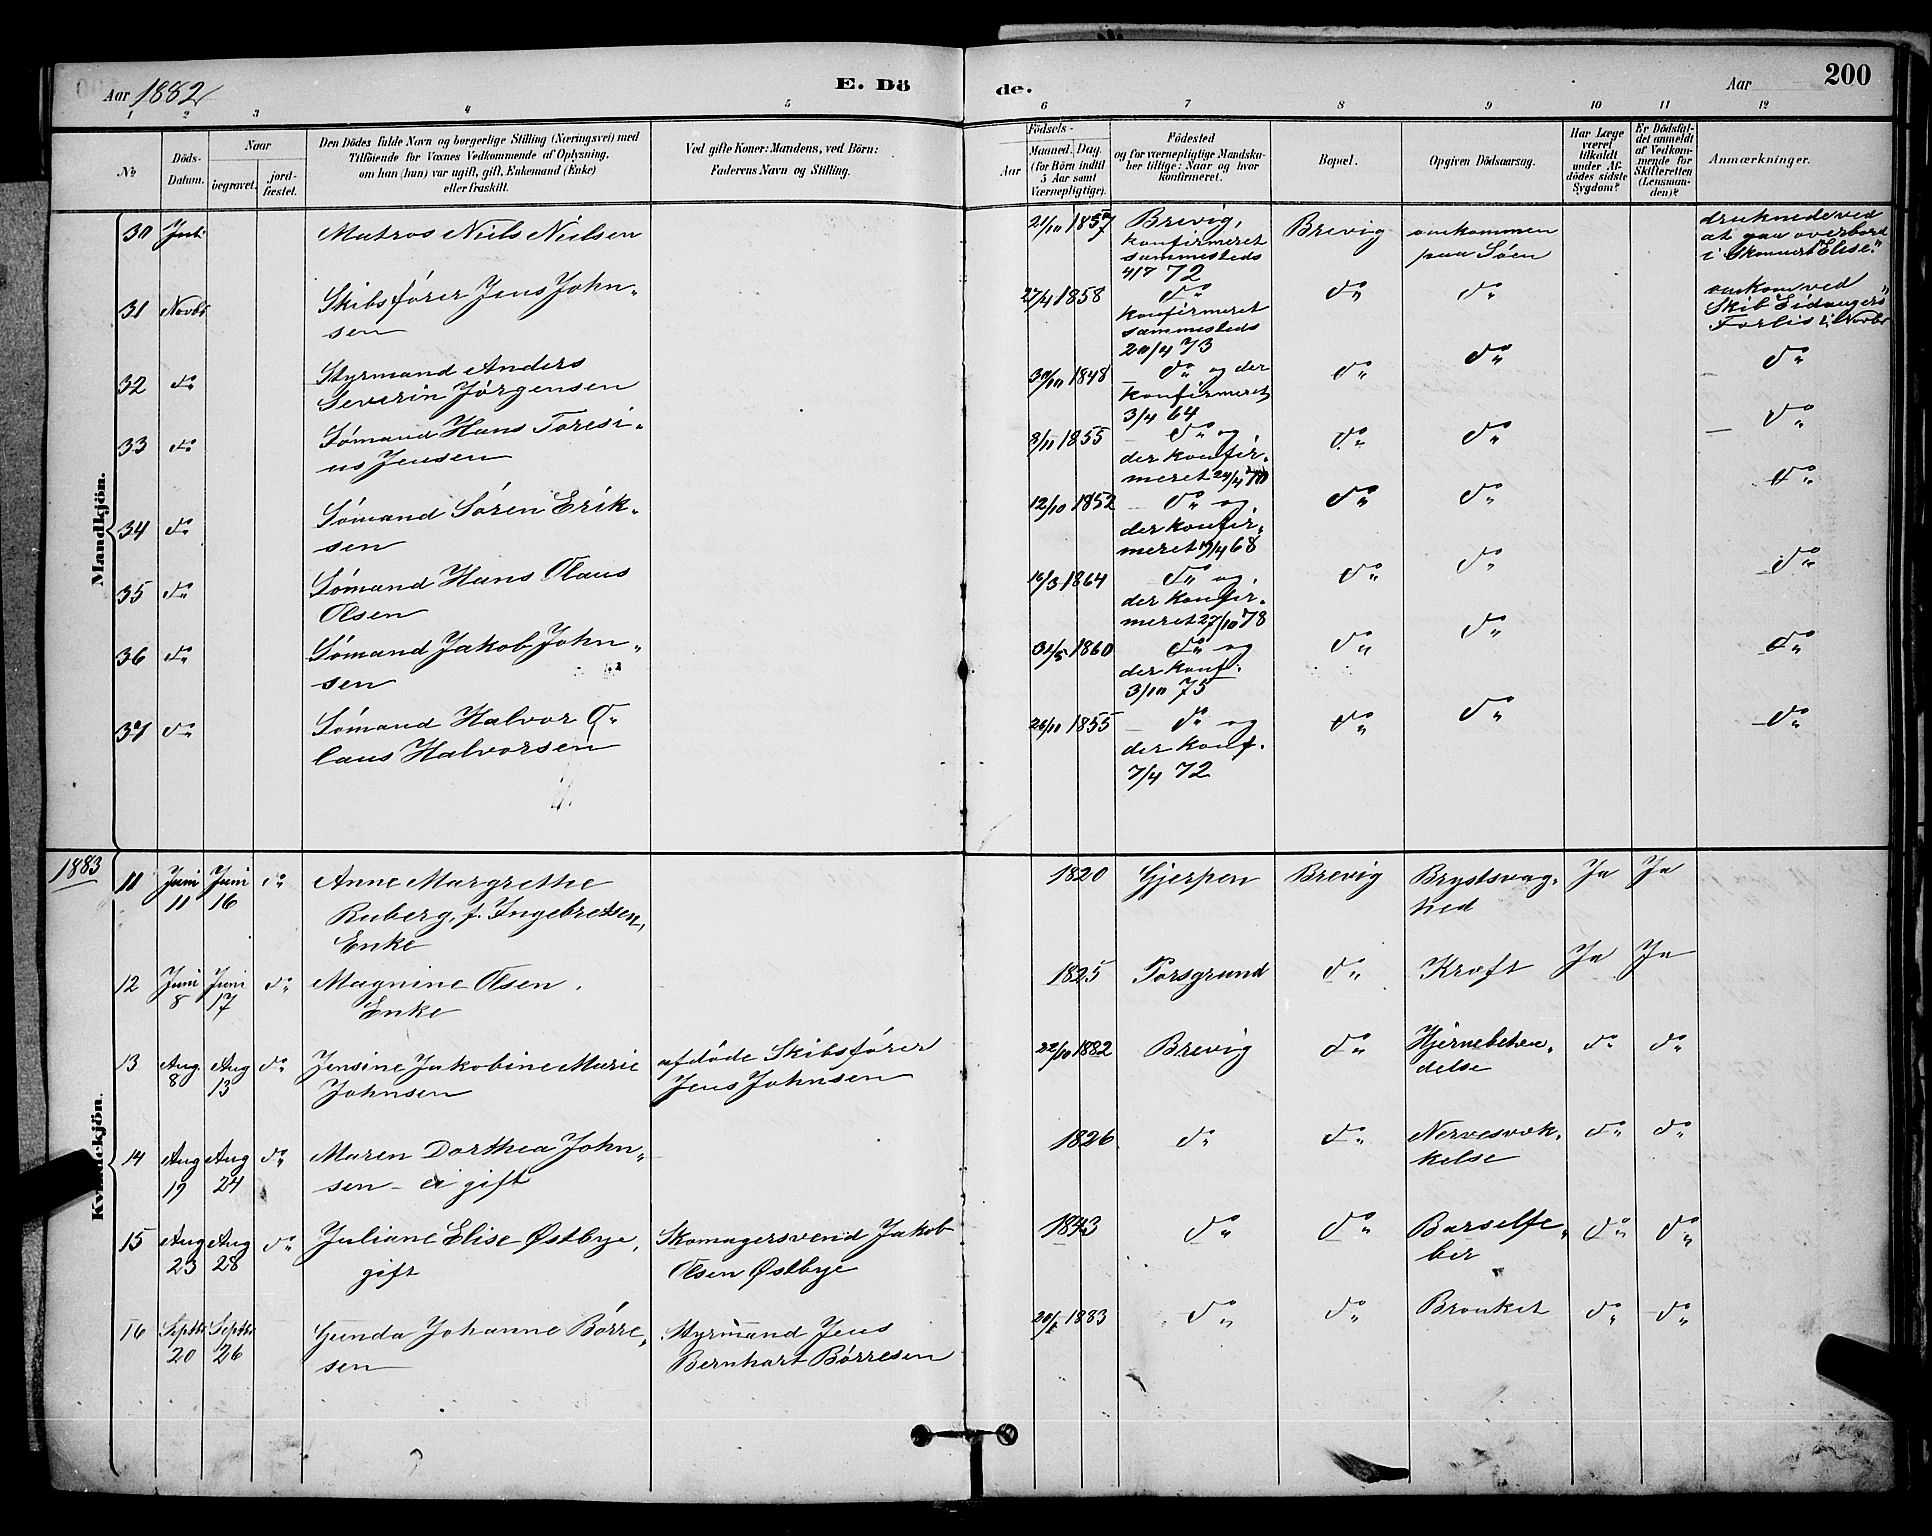 Aar 1882
E. Dö
de.
Aar
200
1 2 3 4 5 6 7 8 9 10 11 12
No
Döds-Datum.
Naar
begravet.
jordfæstet.
Den Dödes fulde Navn og borgerlige Stilling (Næringsvei) med
Tilföiende for Voxnes Vedkommende af Oplysning,
om han (hun) var ugift, gift, Enkemand (Enke)
eller fraskilt.
Ved gifte Koner: Mandens, ved Börn:
Faderens Navn og Stilling.
Födsels-
Aar
Maaned. Dag.
(for Börn indtil
5 Aar samt
Værnepligtige).
Födested
og for værnepligtige Mandska-
ber tillige: Naar og hvor
konfirmeret.
Bopæl.
Opgiven Dödsaarsag.
Har Læge
været
tilkaldt
under Af-
dödes sidste
Sygdom?
Er Dödsfal-
det anmeldt
af Vedkom-
mende for
Skifteretten
(Lensman-
den)?
Anmærkninger.
Mandkjön.
30 Matros Niels Nielsen 21/10 1857 Brevig,
konfirmeret
sammesteds
4/7 72
Brevig
omkommen
paa Söen
druknede ved
at gaa overbord
i Skonnert "Elise"
31 Novbr Skibsförer Jens John-
sen
27/4 1858 do
konfirmeret
sammesteds
20/4 73
do do
omkom ved
Skib Eidangers"
Forlis i Novbr
32 do Styrmand Anders
Severin Jörgensen
30/10 1848 do og der
konfirmeret
3/4 64
do do do
33 do Sömand Hans Toresi-
us Jensen
8/11 1855 do og
der konfir-
meret 24/4 70
do do do
34 do Sömand Sören Erik-
sen
12/10 1852 do og
der konfir-
meret 19/4 68
do do do
35 do Sömand Hans Olaus
Olsen
16/3 1864 do og
der konfir-
meret 27/10 78
do do do
36 do Sömand Jakob John-
sen
31/5 1860 do og
der konf.
3/10 75
do do do
37 do Sömand Halvor O-
laus Halvorsen
26/10 1855 do og
der konf.
7/4 72
do do do
1883
Kvindekjön.
11 Juni 11 Juni 16 do Anne Margrethe
Ruberg, f. Ingebretsen,
Enke
1820 Gjerpen Brevig Brystsvag-
hed
Ja Ja
12 Juni 8 Juni 17 do Magnine Olsen,
Enke
1825 Porsgrund do Kræft Ja Ja
13 Aug. 8 Aug 13 do Jensine Jakobine Marie
Johnsen
afdöde Skibsförer
Jens Johnsen
22/10 1882 Brevig do Hjernebeten-
delse
do do
14 Aug 19 Aug 24 do Maren Dorthea John-
sen - ei gift
1826 do do Nervesvæk-
kelse
do do
15 Aug 23 Aug 28 do Juliane Elise Østbye,
gift
Skomagersvend Jakob
Olsen Østbye
1843 do do Barselfe-
ber
do do
16 Septbr 20 Septbr 26 Gunda Johanne Börre-
sen
Styrmand Jens
Bernhart Börresen
1883 do do Bronket do do